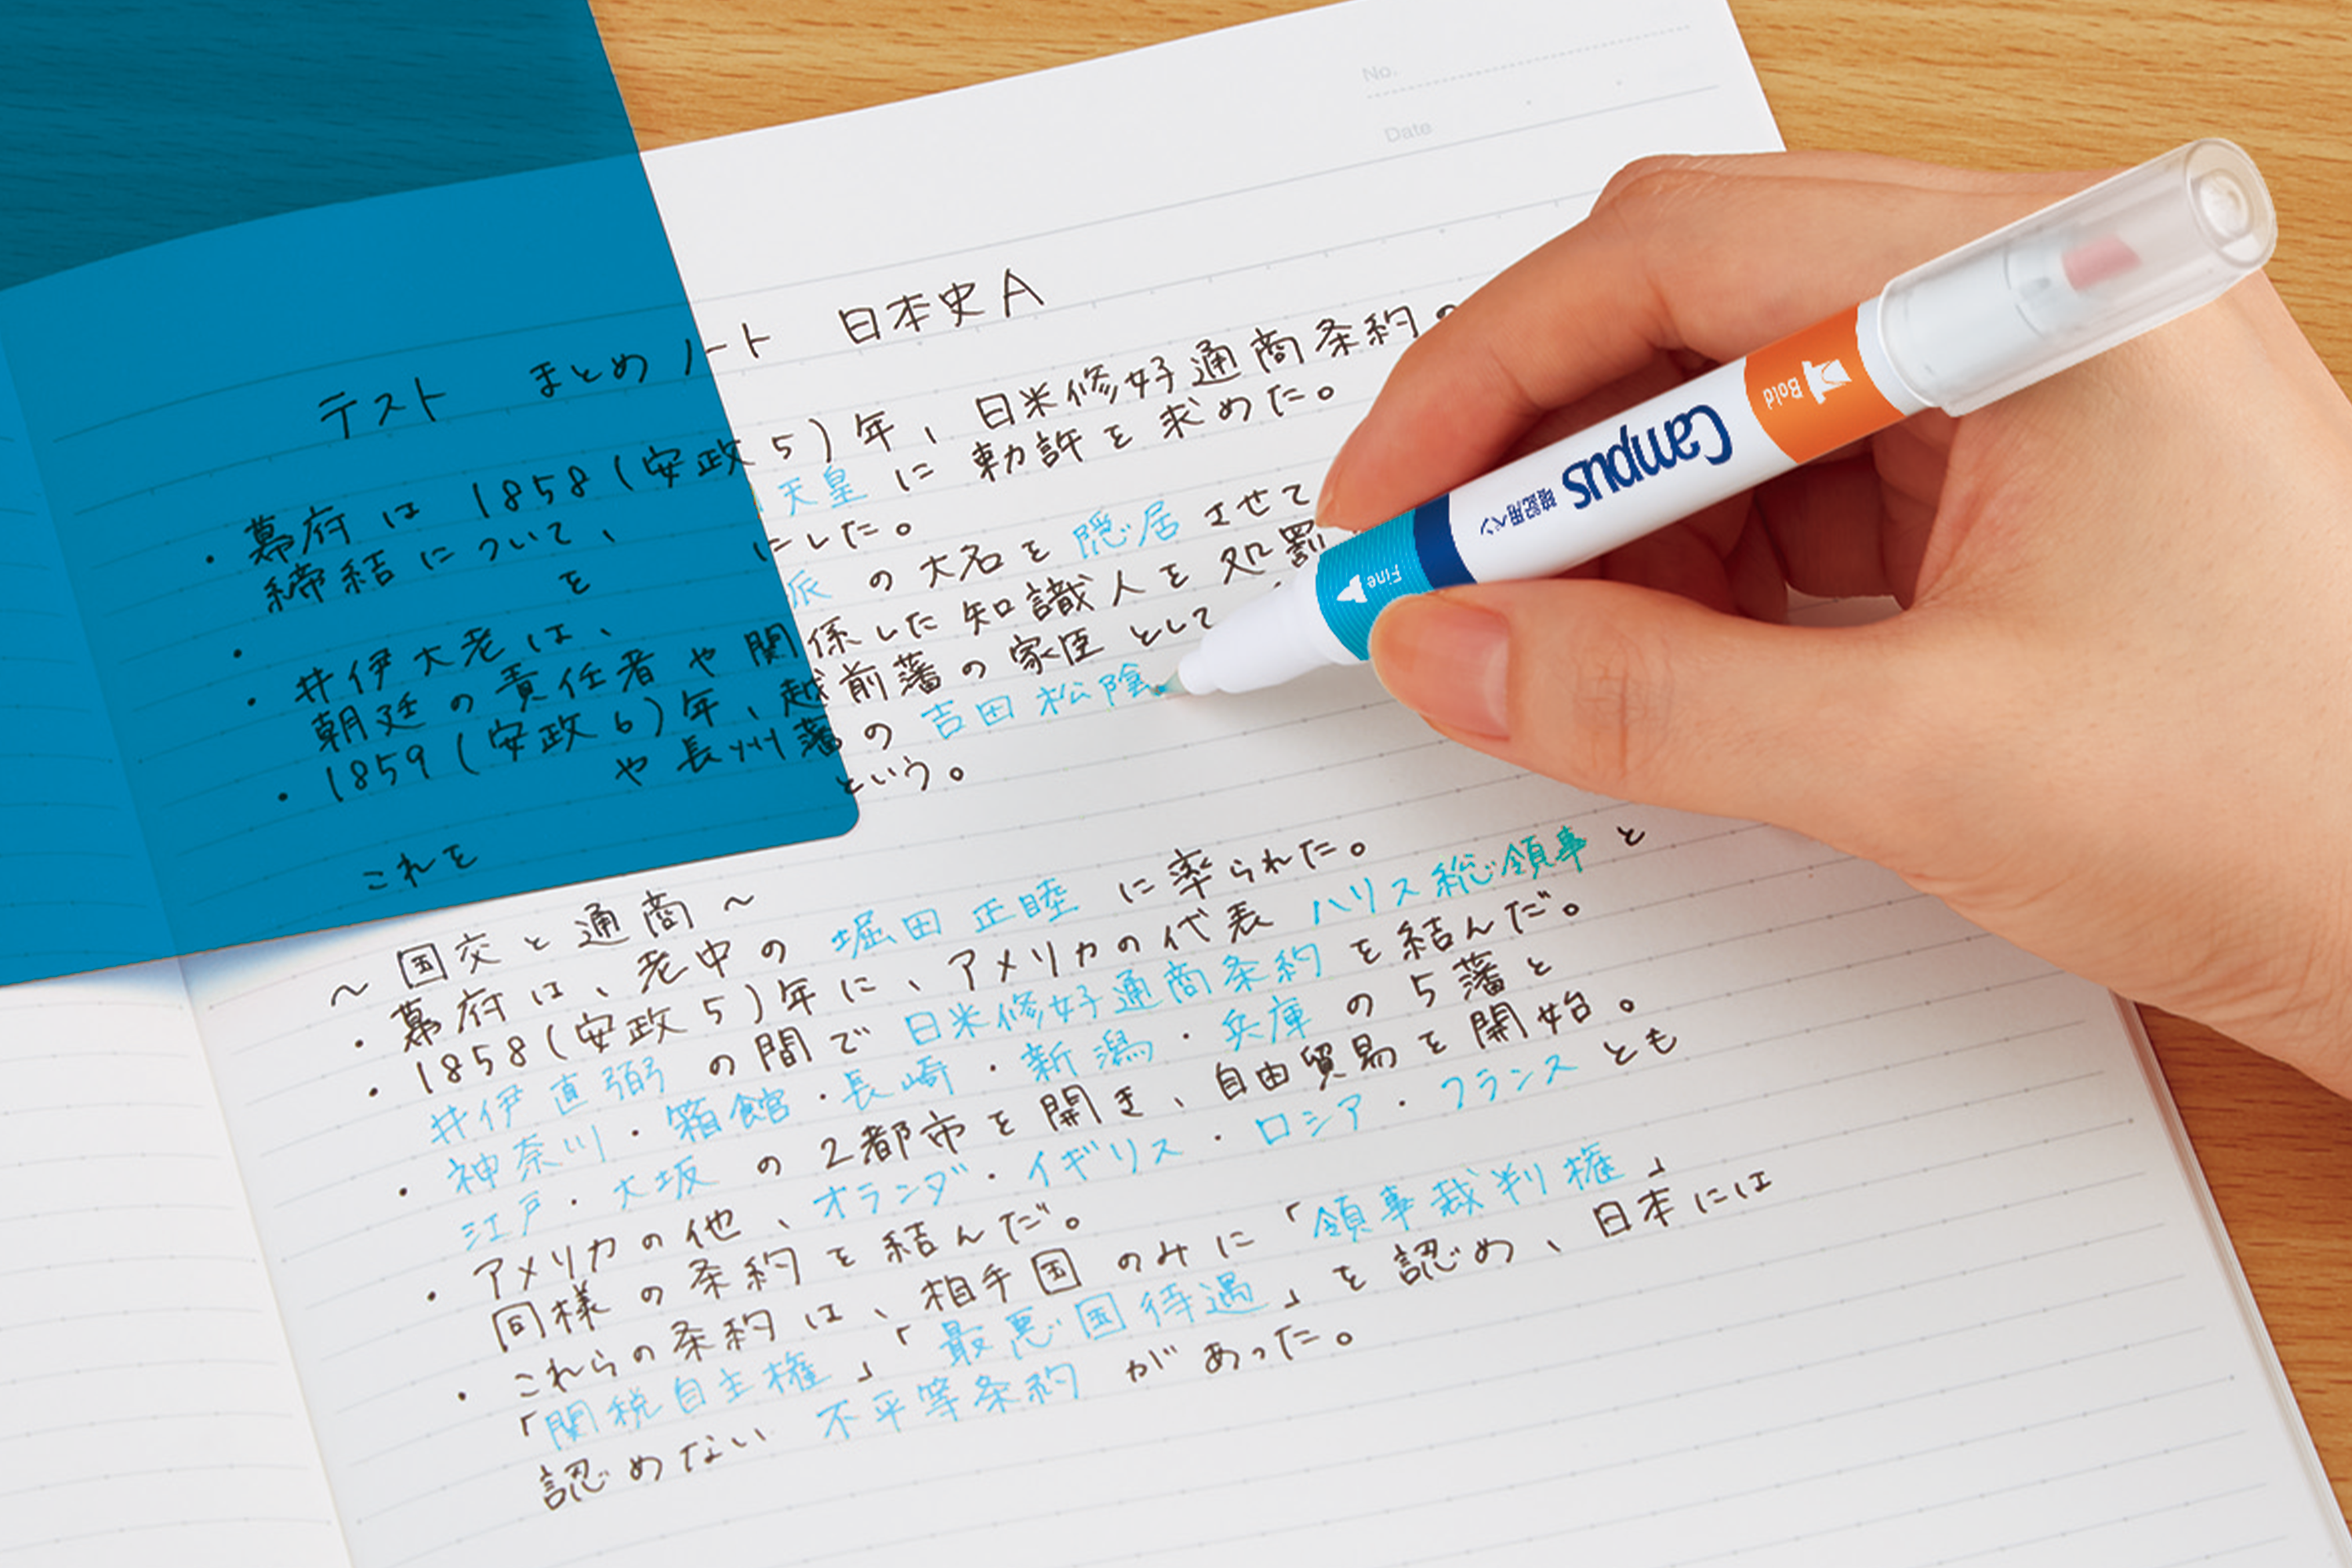 No.
Date
テスト まとめノート 日本史A
・幕府は1858(安政5)年、日米修好通商条約の
締結について、 天皇に勅許を求めた。
・ を にした。
・井伊大老は、 派の大名を隠居させて
朝廷の責任者や関係した知識人を処罰
・1859(安政6)年、越前藩の家臣として
や長州藩の吉田松陰
これを という。
～国交と通商～
・幕府は、老中の堀田正睦に率られた。
・1858(安政5)年に、アメリカの代表ハリス総領事と
井伊直弼の間で日米修好通商条約を結んだ。
・神奈川・箱館・長崎・新潟・兵庫の5藩と
江戸・大坂の2都市を開き、自由貿易を開始。
・アメリカの他、オランダ・イギリス・ロシア・フランスとも
同様の条約を結んだ。
・これらの条約は、相手国のみに「領事裁判権」
「関税自主権」「最悪国待遇」を認め、日本には
認めない不平等条約があった。
Fine
暗記用ペン
Campus
Bold